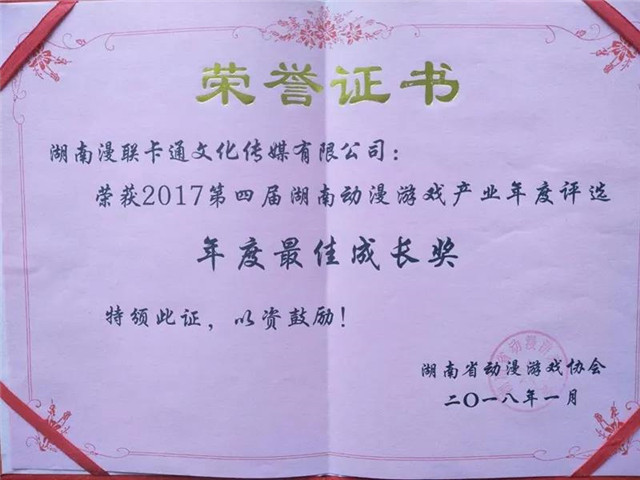 荣誉证书
湖南漫联卡通文化传媒有限公司：
荣获2017第四届湖南动漫游戏产业年度评选
年度最佳成长奖
特颁此证，以资鼓励！
湖南省动漫游戏协会
二〇一八年一月